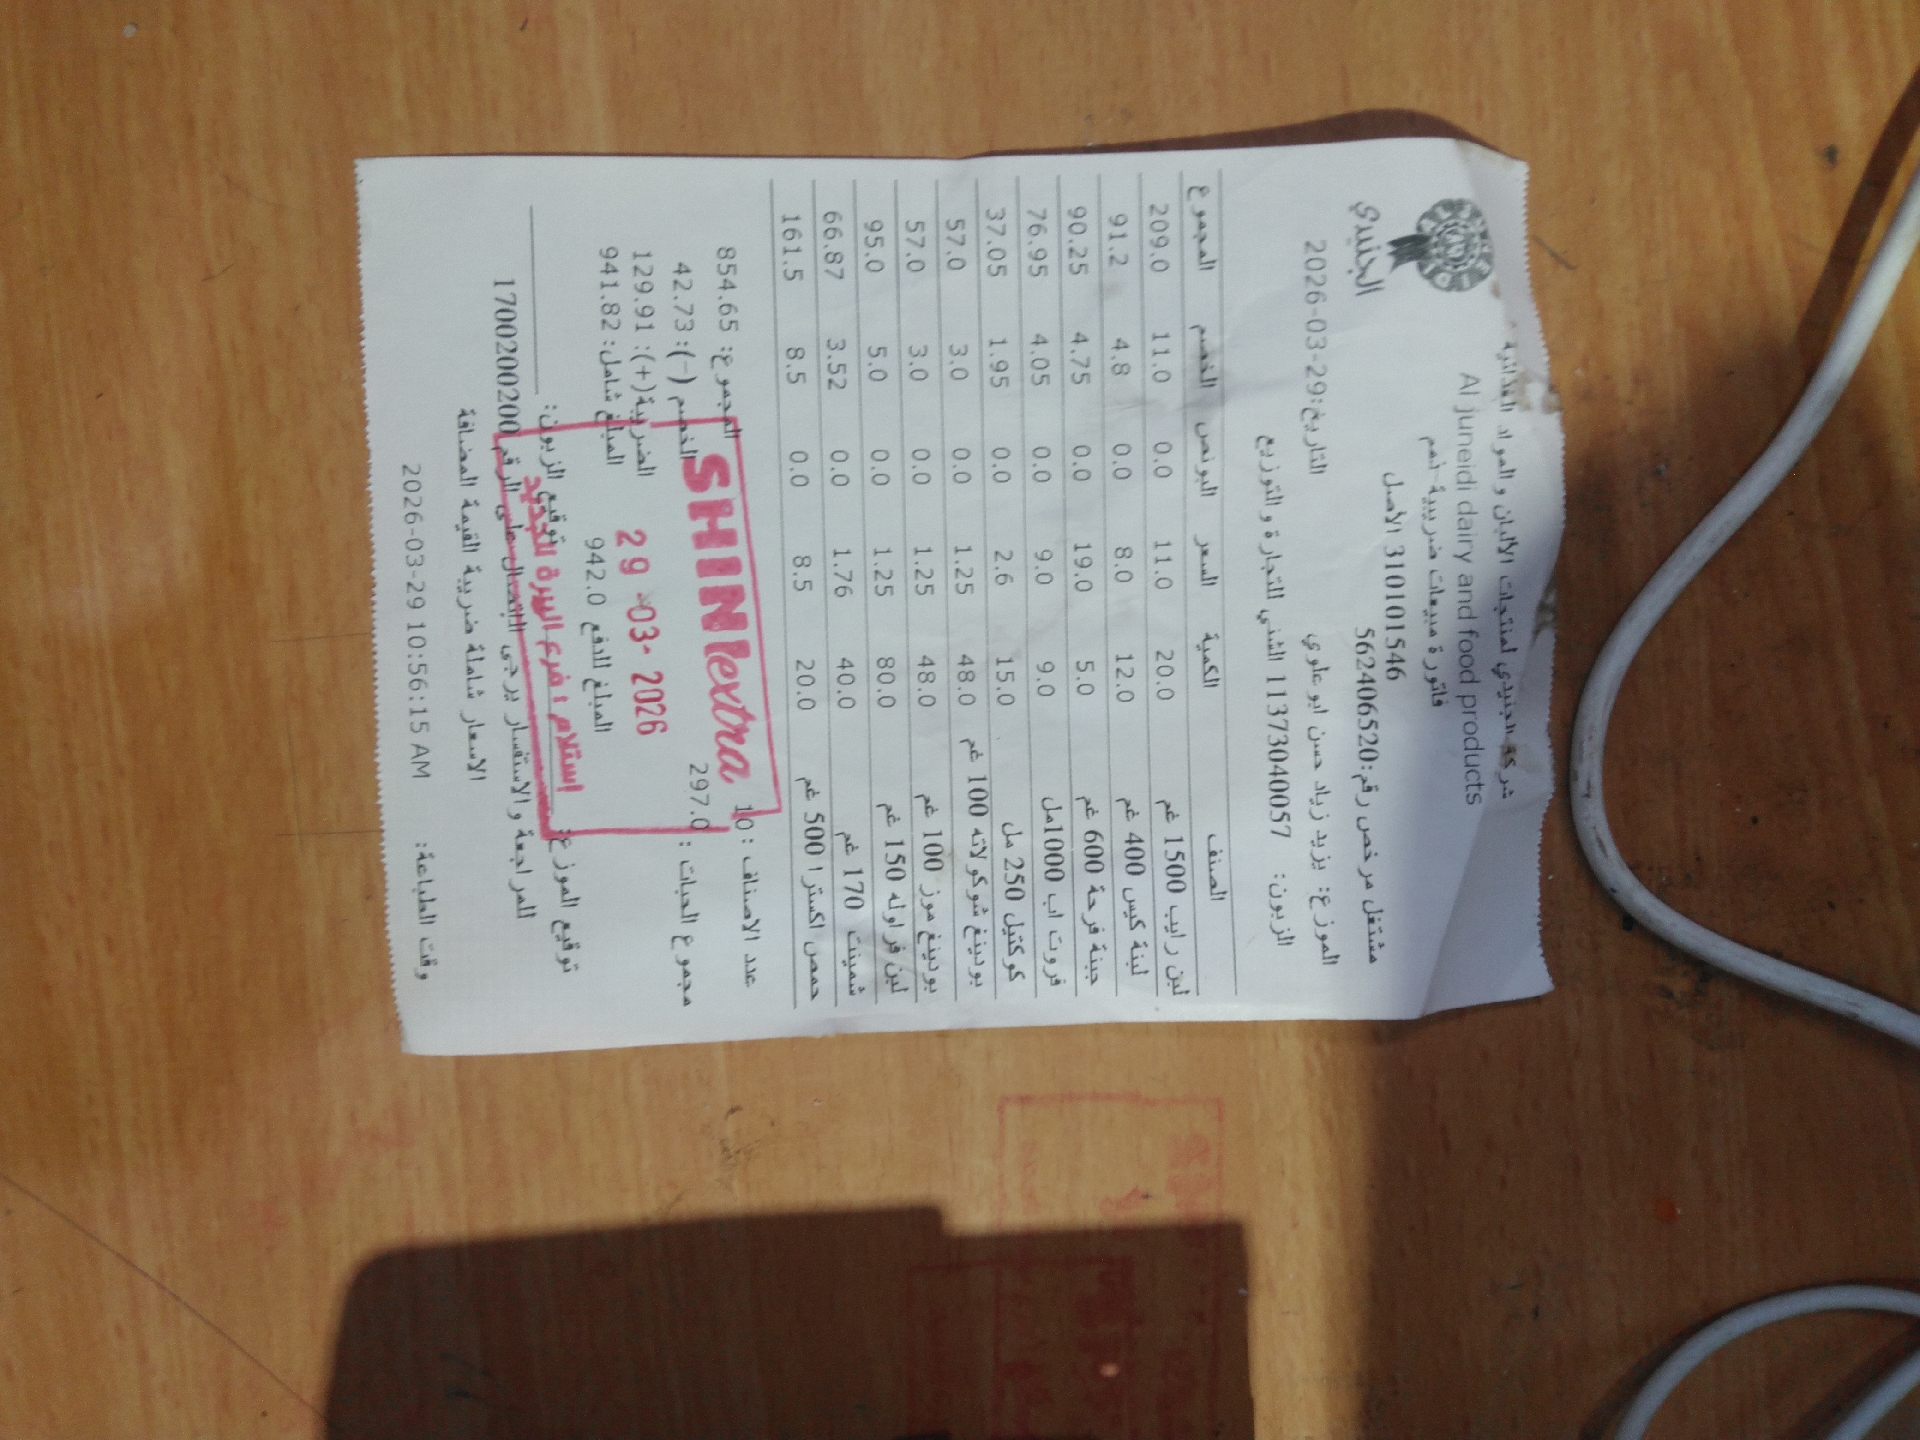 شركة الجنيدي لمنتجات الألبان و المواد الغذائية
Al juneidi dairy and food products
فاتورة مبيعات ضريبية ذمم
310101546 الأصل
مشتغل مرخص رقم:562406520
الجنيدي
الموزع: يزيد زياد حسن ابو علوي التاريخ:2026-03-29
الزبون: 11373040057 الشني للتجارة و التوزيع
الصنف الكمية السعر البونص الخصم المجموع
لبن رايب 1500 غم 20.0 11.0 0.0 11.0 209.0
لبنة كيس 400 غم 12.0 8.0 0.0 4.8 91.2
جبنة فرحة 600 غم 5.0 19.0 0.0 4.75 90.25
فروت اب 1000مل 9.0 9.0 0.0 4.05 76.95
كوكتيل 250 مل 15.0 2.6 0.0 1.95 37.05
بودينغ شوكولاته 100 غم 48.0 1.25 0.0 3.0 57.0
بودينغ موز 100 غم 48.0 1.25 0.0 3.0 57.0
لبن فراوله 150 غم 80.0 1.25 0.0 5.0 95.0
شمينت 170 غم 40.0 1.76 0.0 3.52 66.87
حمص اكسترا 500 غم 20.0 8.5 0.0 8.5 161.5
عدد الاصناف : 10 المجموع: 854.65
مجموع الحبات : 297.0 الخصم (-): 42.73
الضريبة(+): 129.91
المبلغ شامل: 941.82
المبلغ للدفع 942.0
SHINI extra
29 -03- 2026
استلام : فرع البيرة الجديد
توقيع الموزع: توقيع الزبون:
للمراجعة و الاستفسار يرجى الاتصال على الرقم 1700200200
الاسعار شاملة ضريبة القيمة المضافة
وقت الطباعة: 2026-03-29 10:56:15 AM